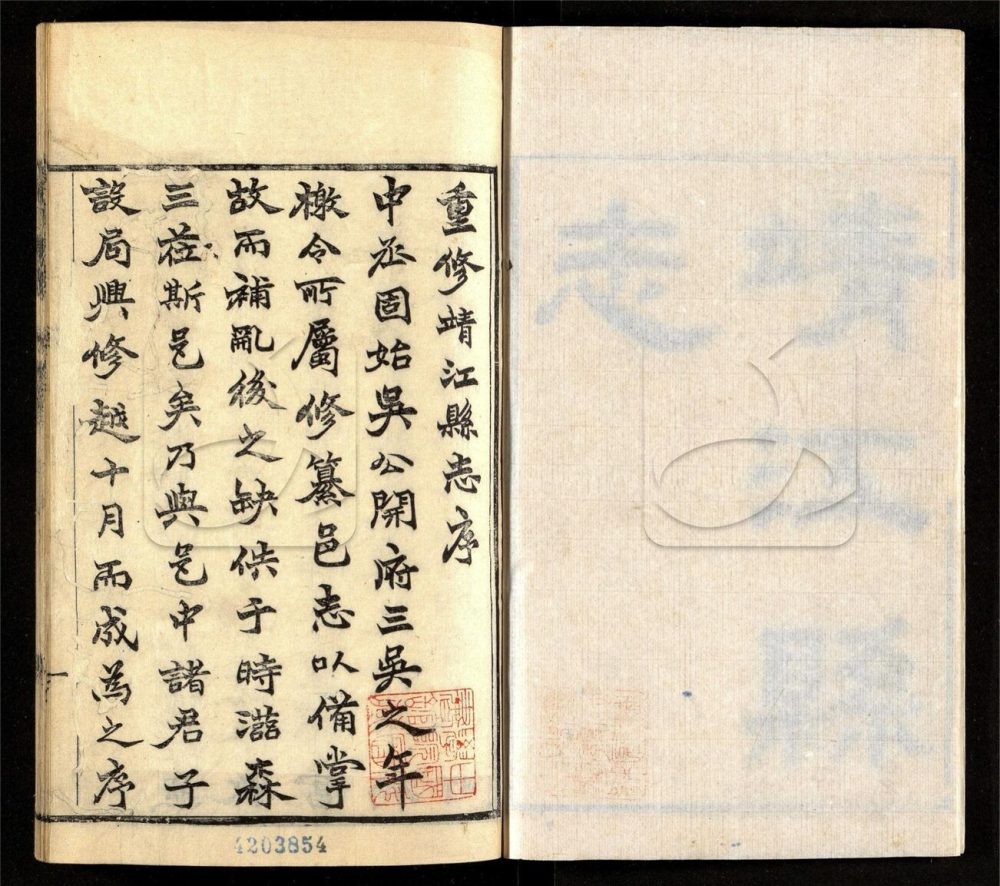 重修靖江縣志序
中丞固始吳公開府三吳之年
檄令所屬修纂邑志以備掌
故而補亂後之缺佚于時灜森
三蒞斯邑矣乃與邑中諸君子
設局興修越十月而成為之序
一
4203854